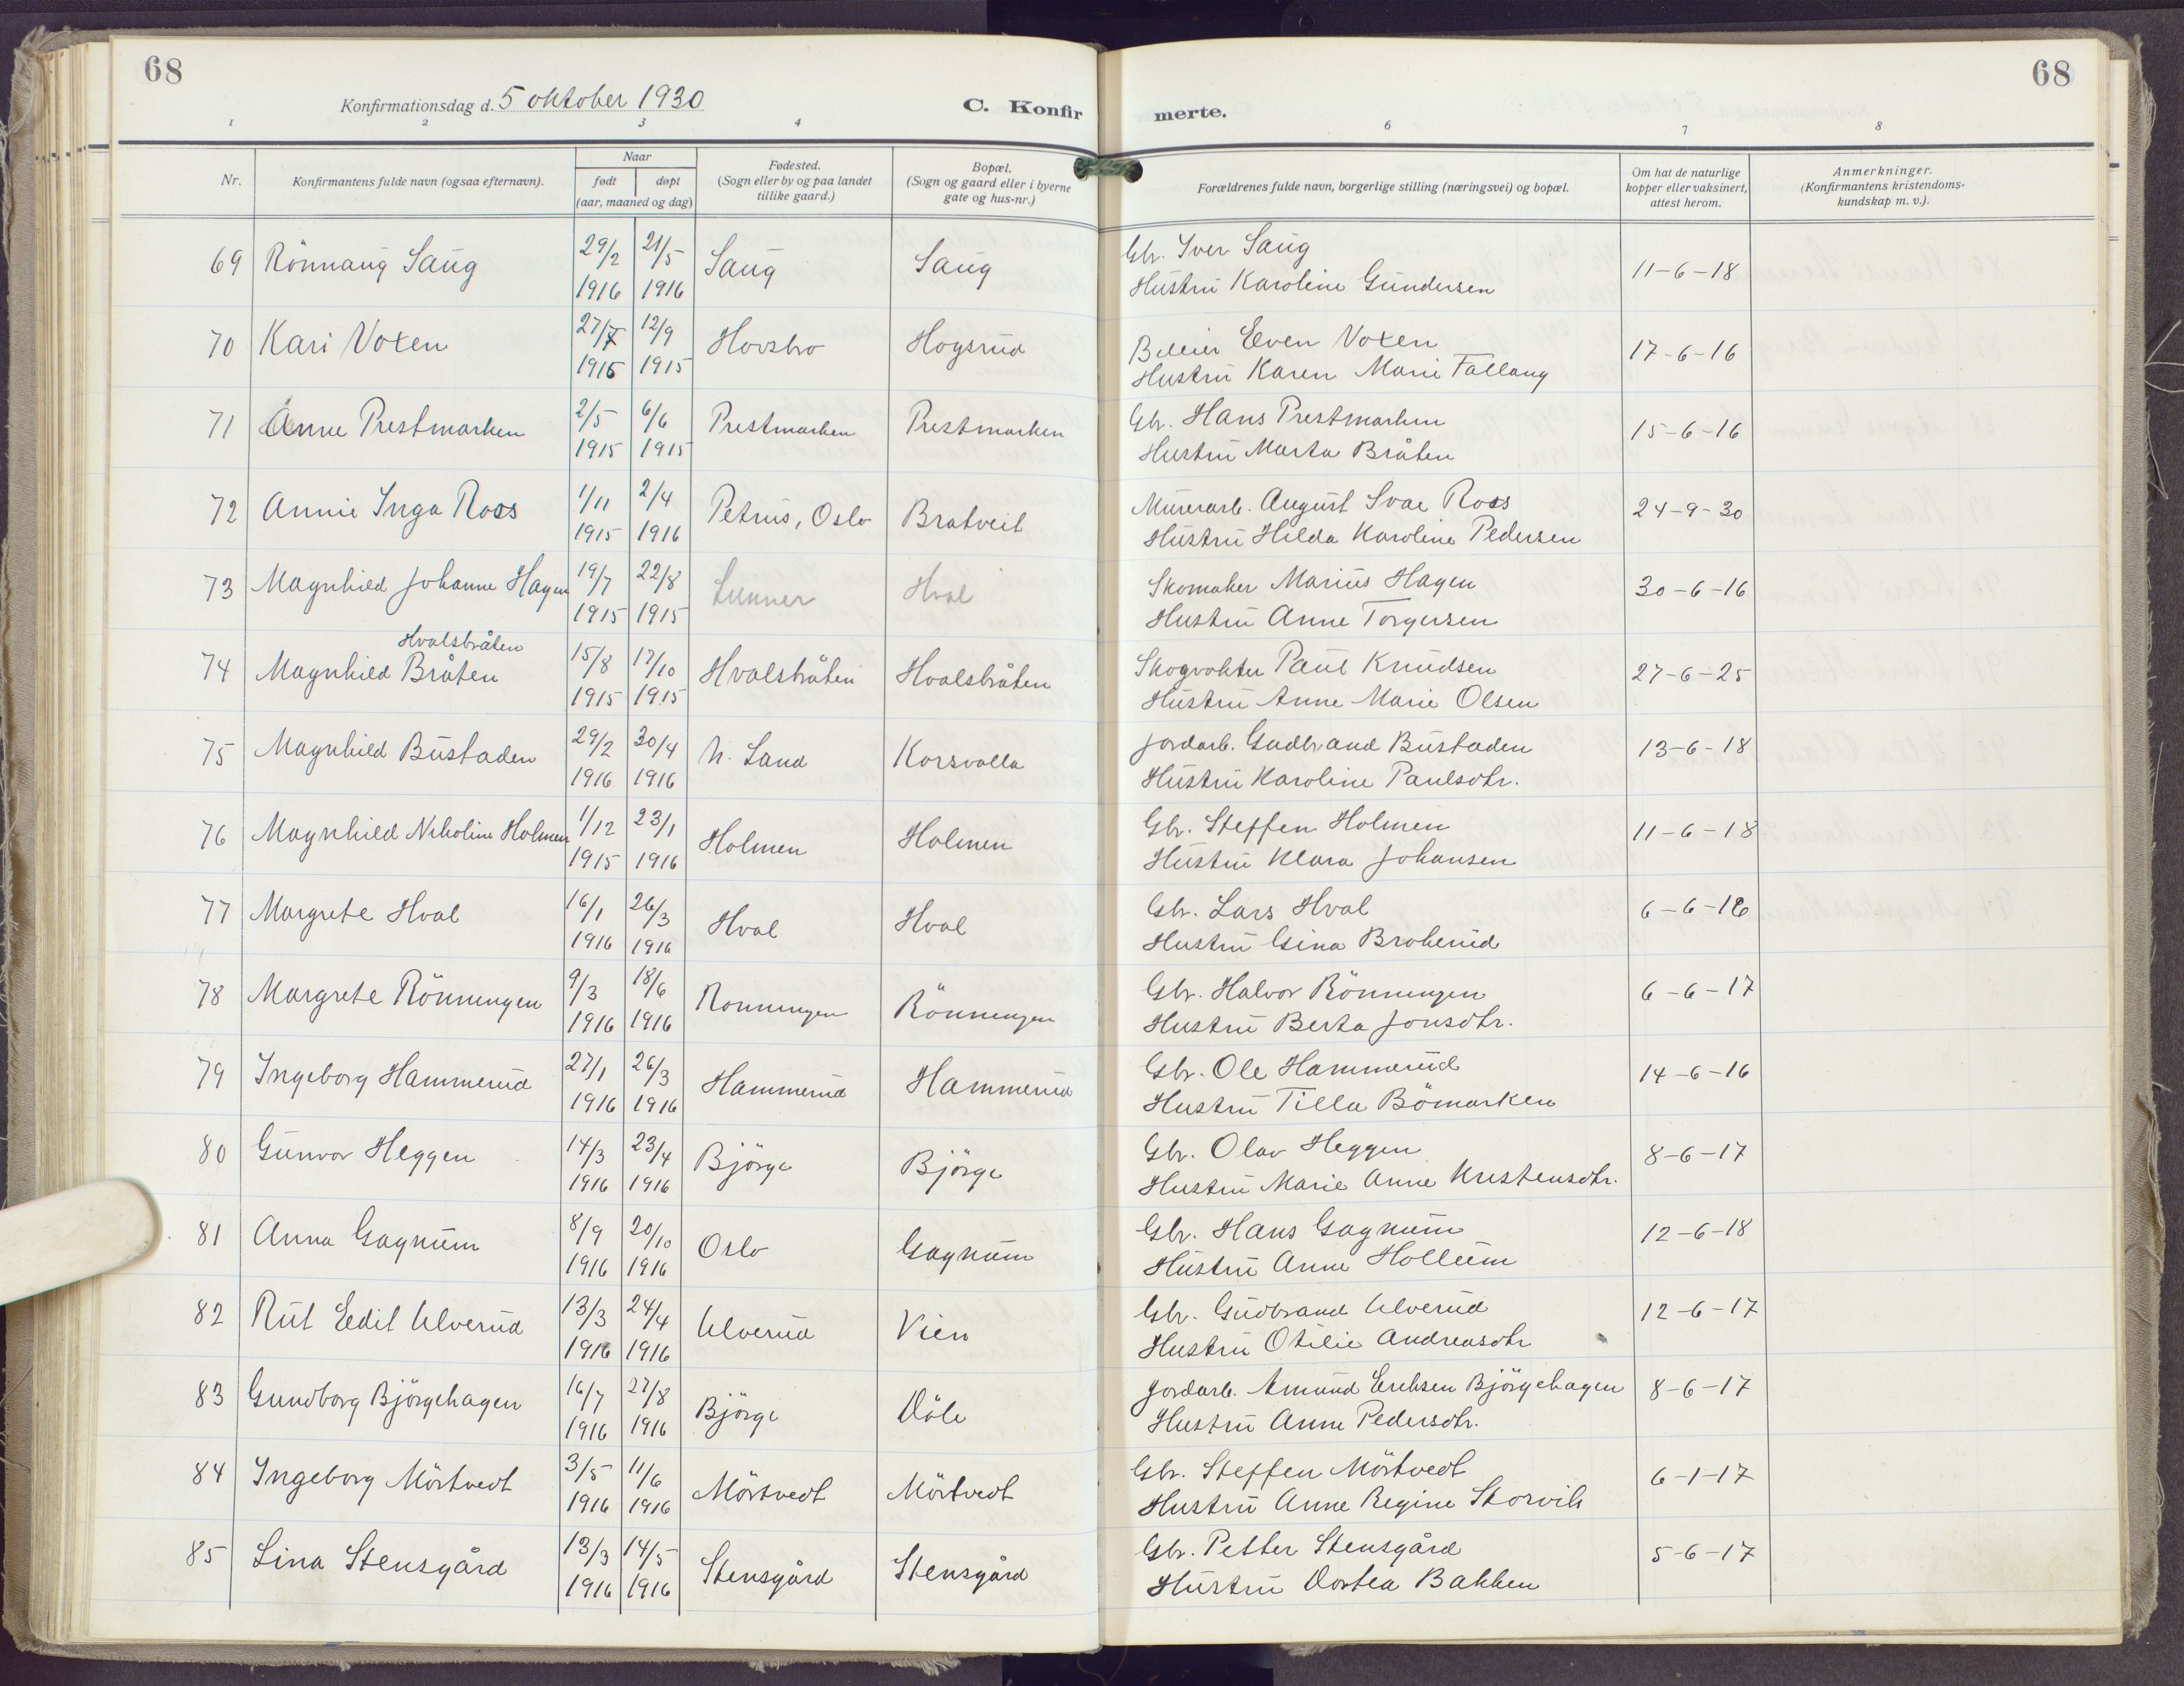 68
68
Konfirmationsdag d. 5 oktober 1930
C. Konfirmerte.
1 2 3 4 6 7 8
Nr. | Konfirmantens fulde navn (ogsaa efternavn). | Naar født døpt (aar, maaned og dag) | Fødested. (Sogn eller by og paa landet tillike gaard.) | Bopæl. (Sogn og gaard eller i byerne gate og hus-nr.) | Forældrenes fulde navn, borgerlige stilling (næringsvei) og bopæl. | Om hat de naturlige kopper eller vaksinert, attest herom. | Anmerkninger. (Konfirmantens kristendomskundskap m. v.).
69 Rönnaug Saug 29/2 1916 21/5 1916 Saug Saug Gbr. Iver Saug
Hustru Karoline Gundersen 11-6-18
70 Kari Voxen 27/7 1915 12/9 1915 Hovsbro Hogsrud Beleier Even Voxen
Hustru Karen Marie Fallang 17-6-16
71 Anne Prestmarken 2/5 1915 6/6 1915 Prestmarken Prestmarken Gbr. Hans Prestmarken
Hustru Marta Bråten 15-6-16
72 Annie Inga Roos 1/11 1915 2/4 1916 Petrus, Oslo Bratveit Murerarb. August Svae Roos
Hustru Hilda Karoline Pedersen 24-9-30
73 Magnhild Johanne Hagen 19/7 1915 22/8 1915 Lunner Hval Skomaker Marius Hagen
Hustru Anne Torgersen 30-6-16
Hvalsbråten
74 Magnhild Bråten 15/8 1915 17/10 1915 Hvalsbråten Hvalsbråten Skogvokter Paul Knudsen
Hustru Anne Marie Olsen 27-6-25
75 Magnhild Bustaden 29/2 1916 30/4 1916 N. Land Korsvolla Jordarb. Gudbrand Bustaden
Hustru Karoline Paulsdtr. 13-6-18
76 Magnhild Nikoline Holmen 1/12 1915 23/1 1916 Holmen Holmen Gbr. Steffen Holmen
Hustru Klara Johansen 11-6-18
77 Margrete Hval 16/1 1916 26/3 1916 Hval Hval Gbr. Lars Hval
Hustru Gina Brokerud 6-6-16
78 Margrete Rönningen 9/3 1916 18/6 1916 Ronningen Rönningen Gbr. Halvor Rönningen
Hustru Berta Jonsdtr. 6-6-17
79 Ingeborg Hammerud 27/1 1916 26/3 1916 Hammerud Hammerud Gbr. Ole Hammerud
Hustru Tilla Bömarken 14-6-16
80 Gunvor Heggen 14/3 1916 23/4 1916 Björge Björge Gbr. Olav Heggen
Hustru Marie Anne Kristensdtr. 8-6-17
81 Anna Gagnum 8/9 1916 20/10 1916 Oslo Gagnum Gbr. Hans Gagnum
Hustru Anne Hollum 12-6-18
82 Rut Edit Ulverud 13/3 1916 24/4 1916 Ulverud Vien Gbr. Gudbrand Ulverud
Hustru Otilie Andreasdtr 12-6-17
83 Gundborg Björgehagen 16/7 1916 27/8 1916 Björge Döle Jordarb. Amund Eriksen Björgehagen
Hustru Anne Pedersdtr. 8-6-17
84 Ingeborg Mörtvedt 3/5 1916 11/6 1916 Mörtvedt Mörtvedt Gbr. Steffen Mörtvedt
Hustru Anne Regine Storvik 6-1-17
85 Lina Stensgård 13/3 1916 14/5 1916 Stensgård Stensgård Gbr. Petter Stensgård
Hustru Dortea Bakken 5-6-17